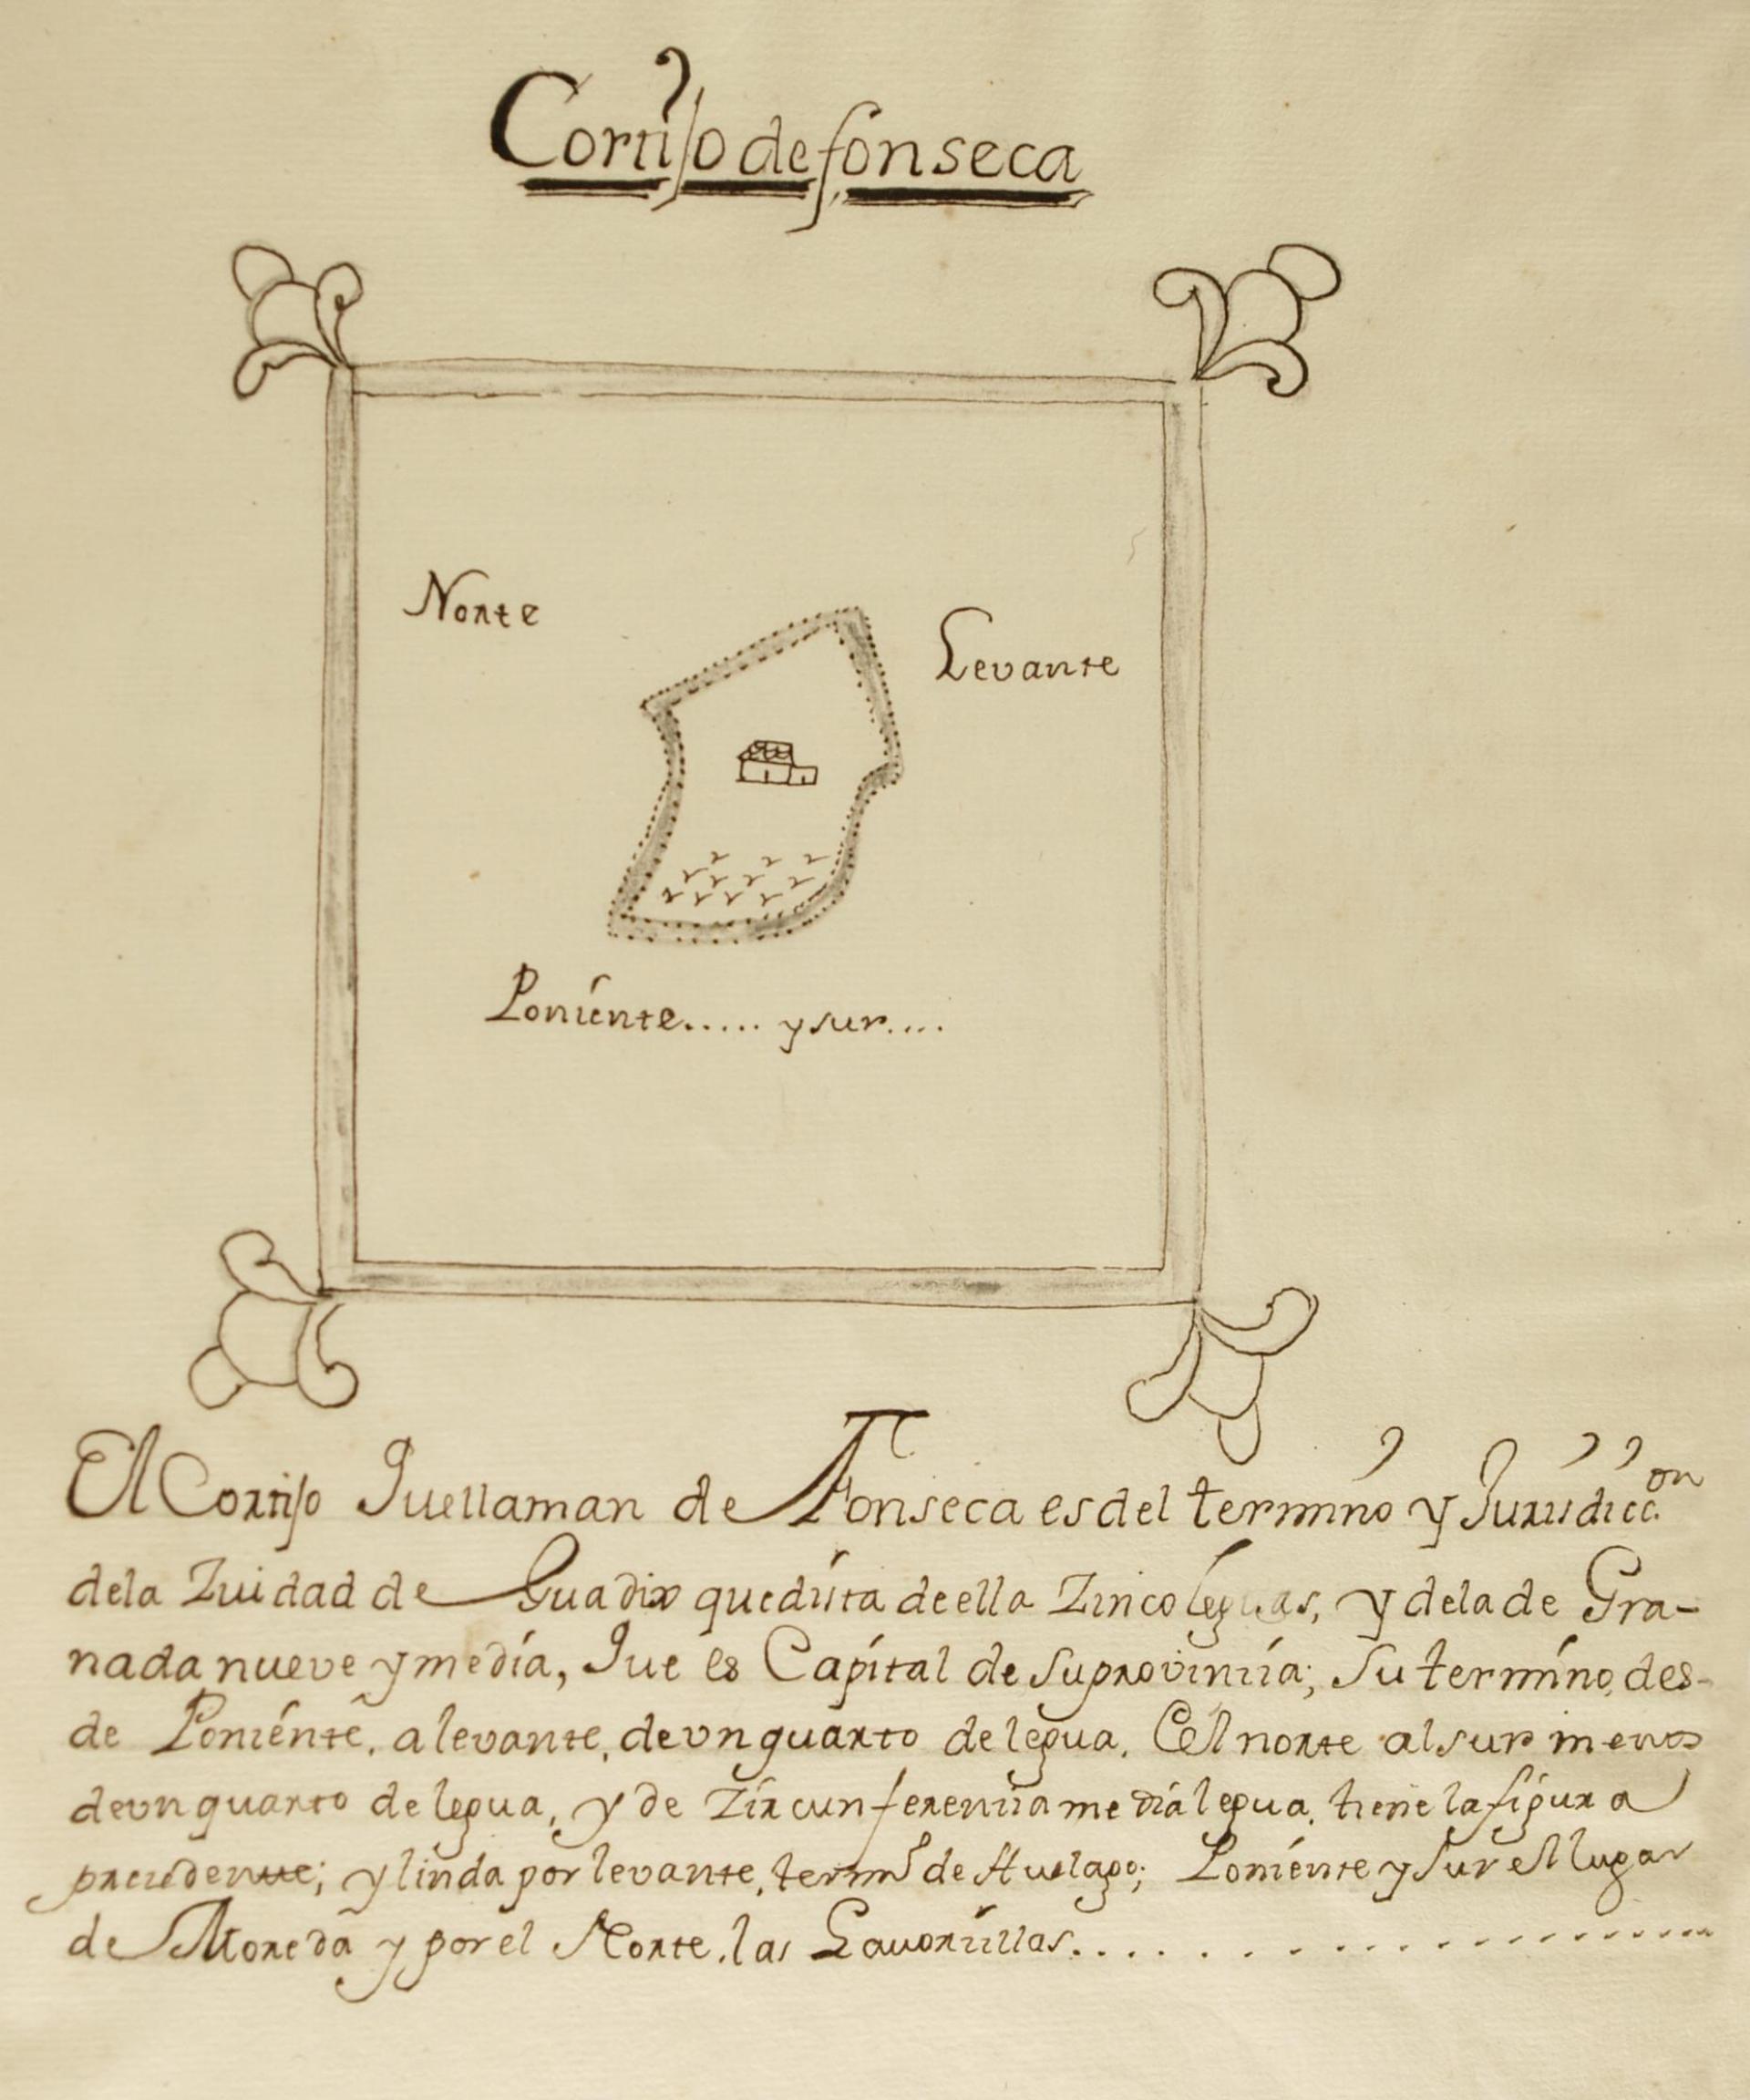 Cortiso de fonseca
Norte
Levante
Poniente..... y sur....
El Cortiso Que llaman de Fonseca es del termino y Jurisdicc.on
de la Zuidad de Guadix que dista de ella Zinco leguas, y de la de Gra-
nada nueve y media, Que es Capital de su provinzia; Su termino, des-
de Poniente, a levante, de vn quarto de legua, Del norte al sur menos
de vn quarto de legua, y de Zircunferenzia media legua, tiene la figura
precedente; y linda por levante, termo. de Huelago; Poniente y Sur el lugar
de Moreda y por el Norte, las Gavorillas.....................